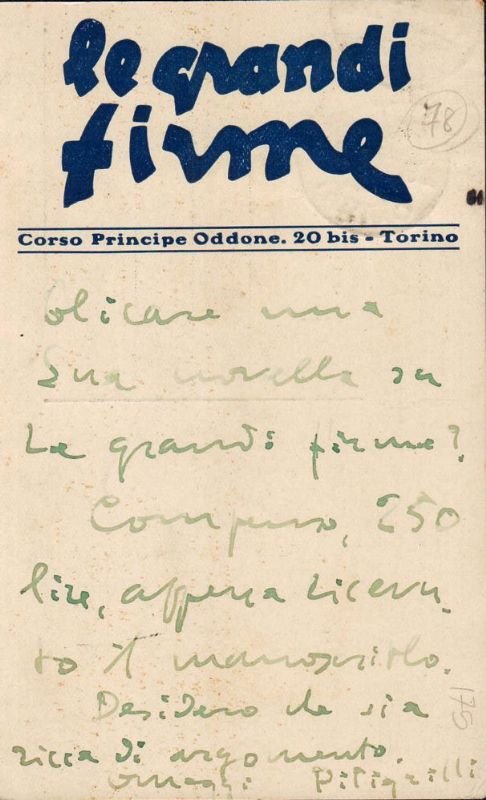 le grandi
firme
78
Corso Principe Oddone. 20 bis - Torino
blicare una
Sua novella su
Le grandi firme?
Compenso, 250
lire, appena ricevu
to il manoscritto.
Desidero che sia
ricca di argomento.
omaggi Pitigrilli
175